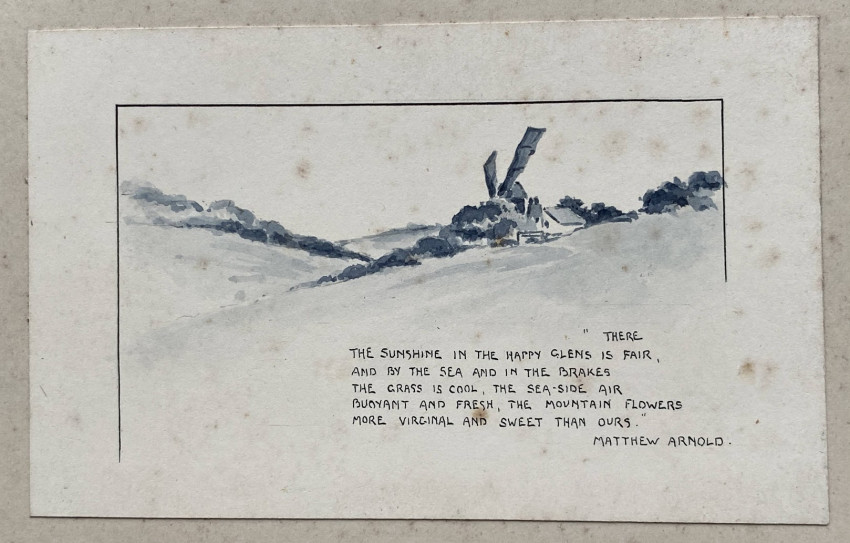 " THERE
THE SUNSHINE IN THE HAPPY GLENS IS FAIR,
AND BY THE SEA AND IN THE BRAKES
THE GRASS IS COOL, THE SEA-SIDE AIR
BUOYANT AND FRESH, THE MOUNTAIN FLOWERS
MORE VIRGINAL AND SWEET THAN OURS."
MATTHEW ARNOLD.